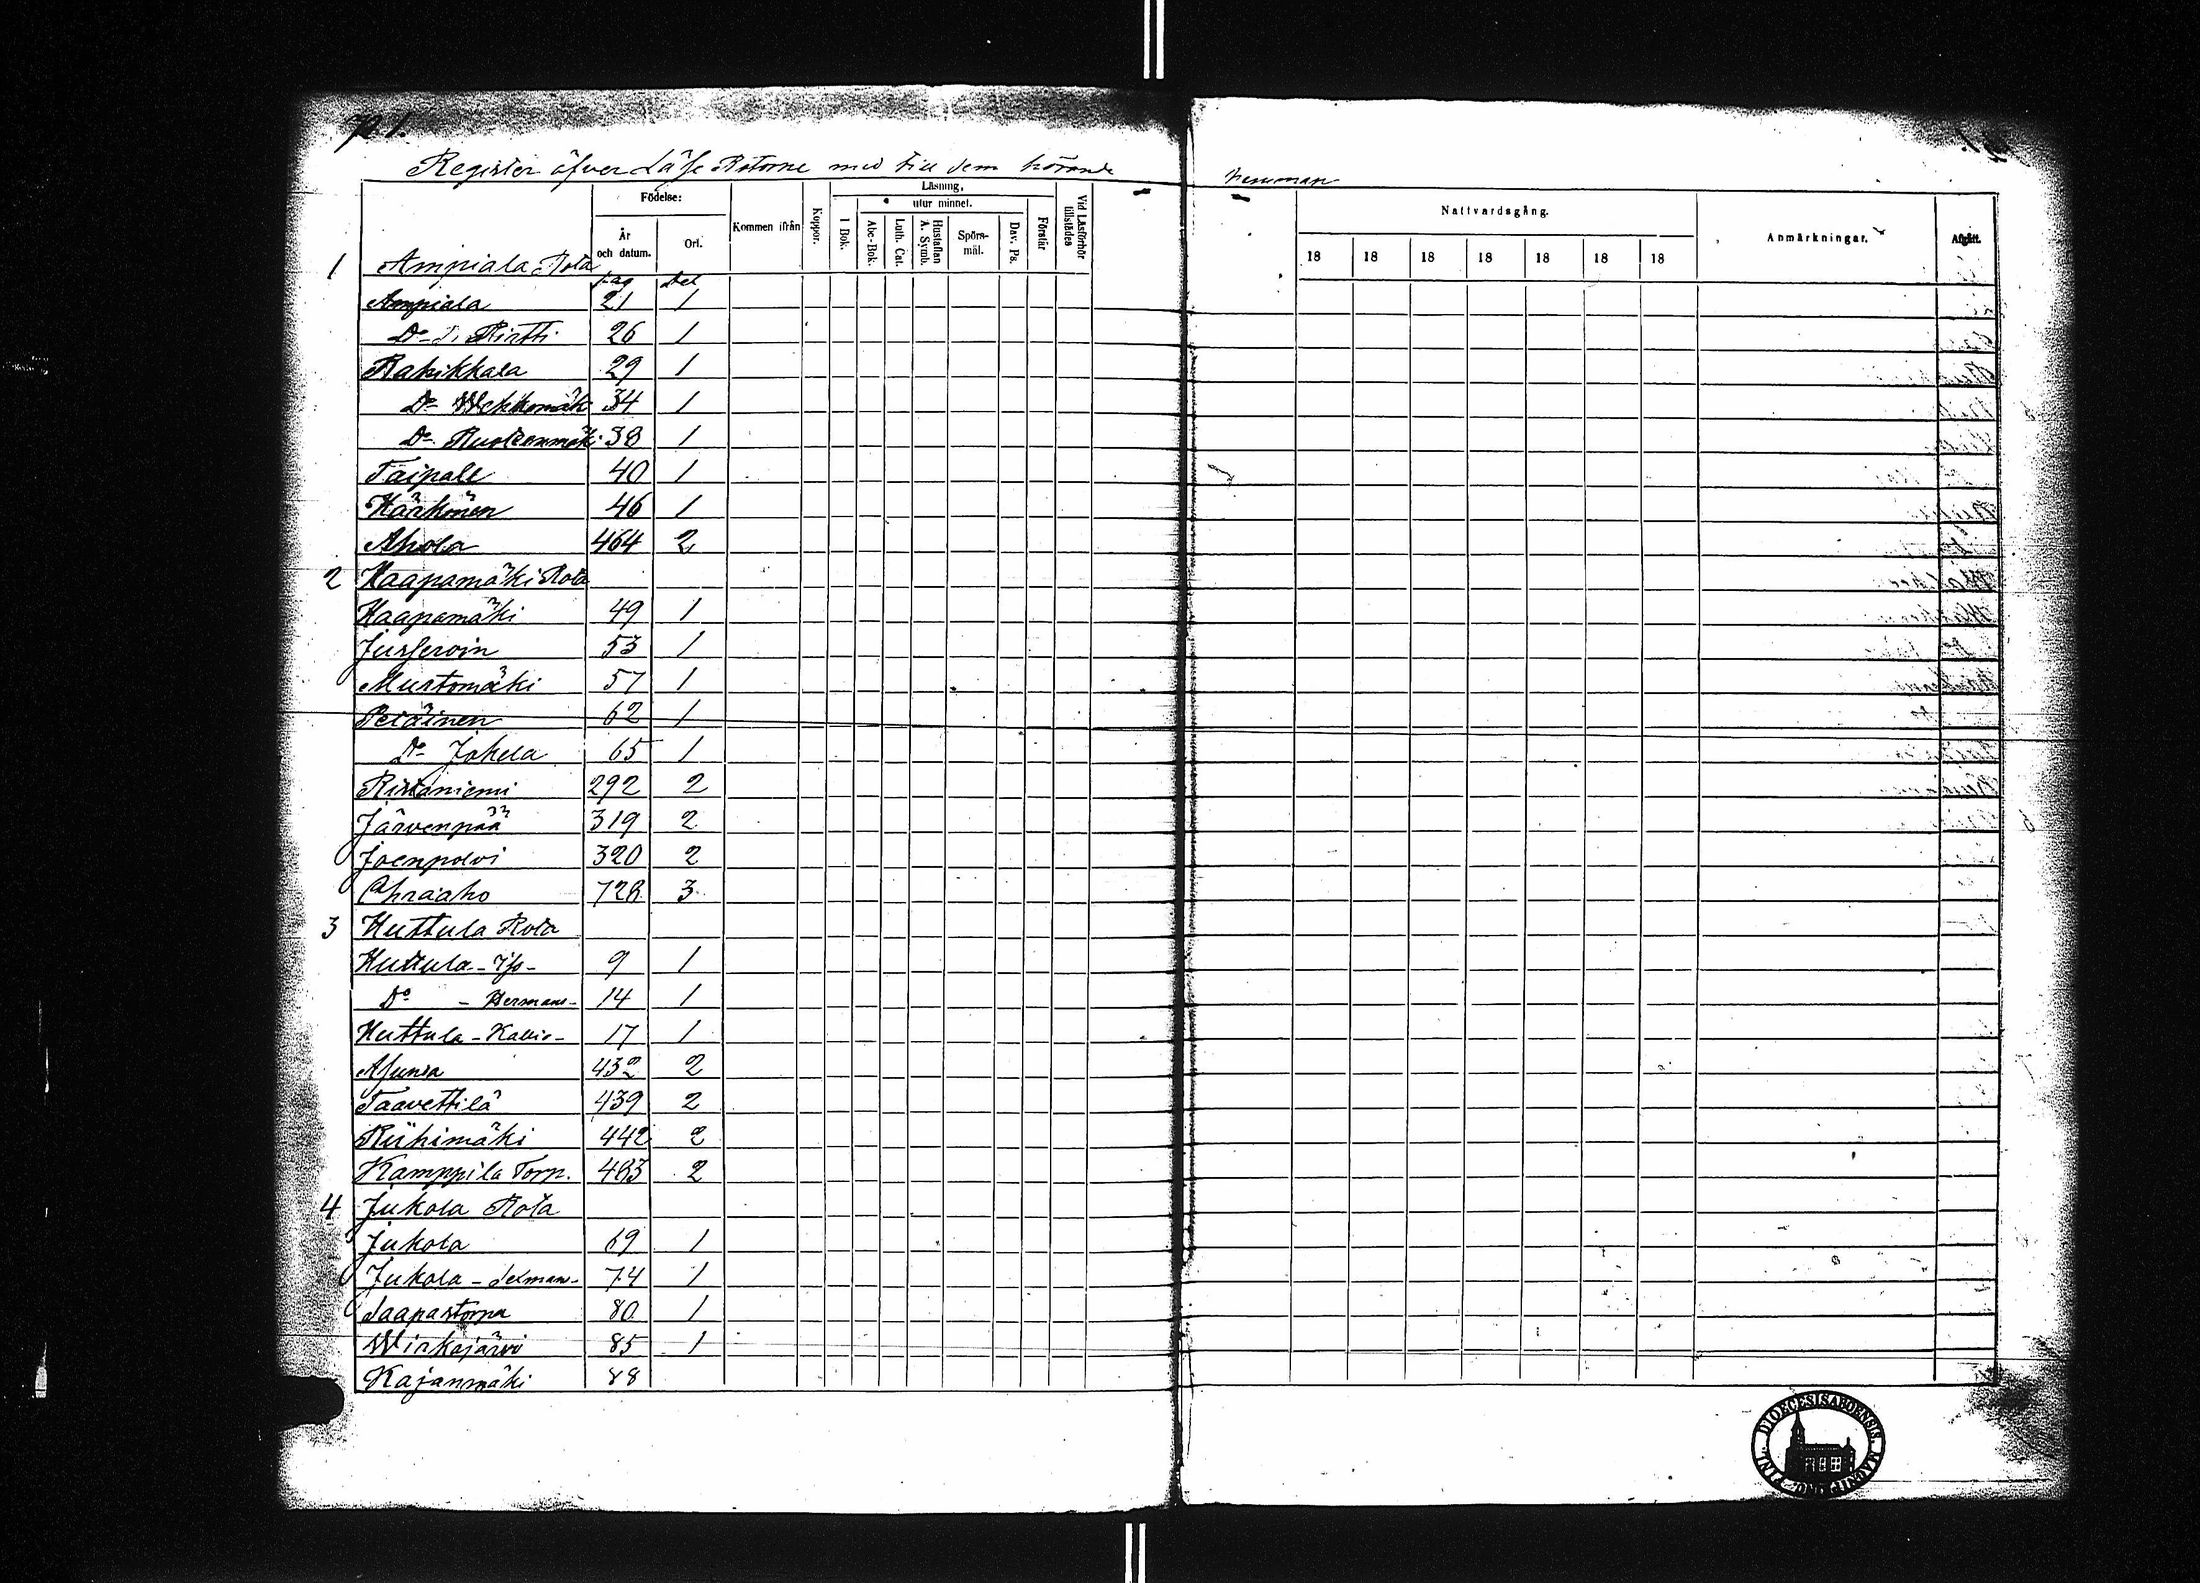 721.
Register öfver Läse Rotorne med till dem hörande hemman
Födelse:
År och datum.
Ort.
Kommen ifrån
Koppor.
Läsning,
utur minnet.
I Bok.
Abc-Bok.
Luth. Cat.
Hustaflan A. Symb.
Spörs-mål.
Dav. Ps.
Förstår
Vid Läsförhör tillstädes
Nattvardsgång.
18 18 18 18 18 18 18
Anmärkningar.
Afgått.
1 Ampiala Rota pag Del
Ampiala 21 1
Do 26 1
Rahikkala 29 1
Do 34 1
Do 38 1
Taipale 40 1
Kärkönen 46 1
Ahola 464 2
2 Haapamäki Rota
Haapamäki 49 1
Jusseroin 53 1
Mustomäki 57 1
Petäinen 62 1
Do Jokela 65 1
Ristaniemi 292 2
Järvenpää 319 2
Joenpolvi 320 2
728 3
3 Huttula Rota
Huttula 9 1
Do - Hermans- 14 1
Huttula - 17 1
432 2
Taavettilä 439 2
Riihimäki 442 2
Kamppila Torp. 463 2
4 Jukola Rota
Jukola 69 1
Jukola - 74 1
Saapastorpa 80 1
Wirkajärvi 85 1
Kajanmäki 88
DIOECESIS ABOENSIS. MAGNI DUC. FINL.